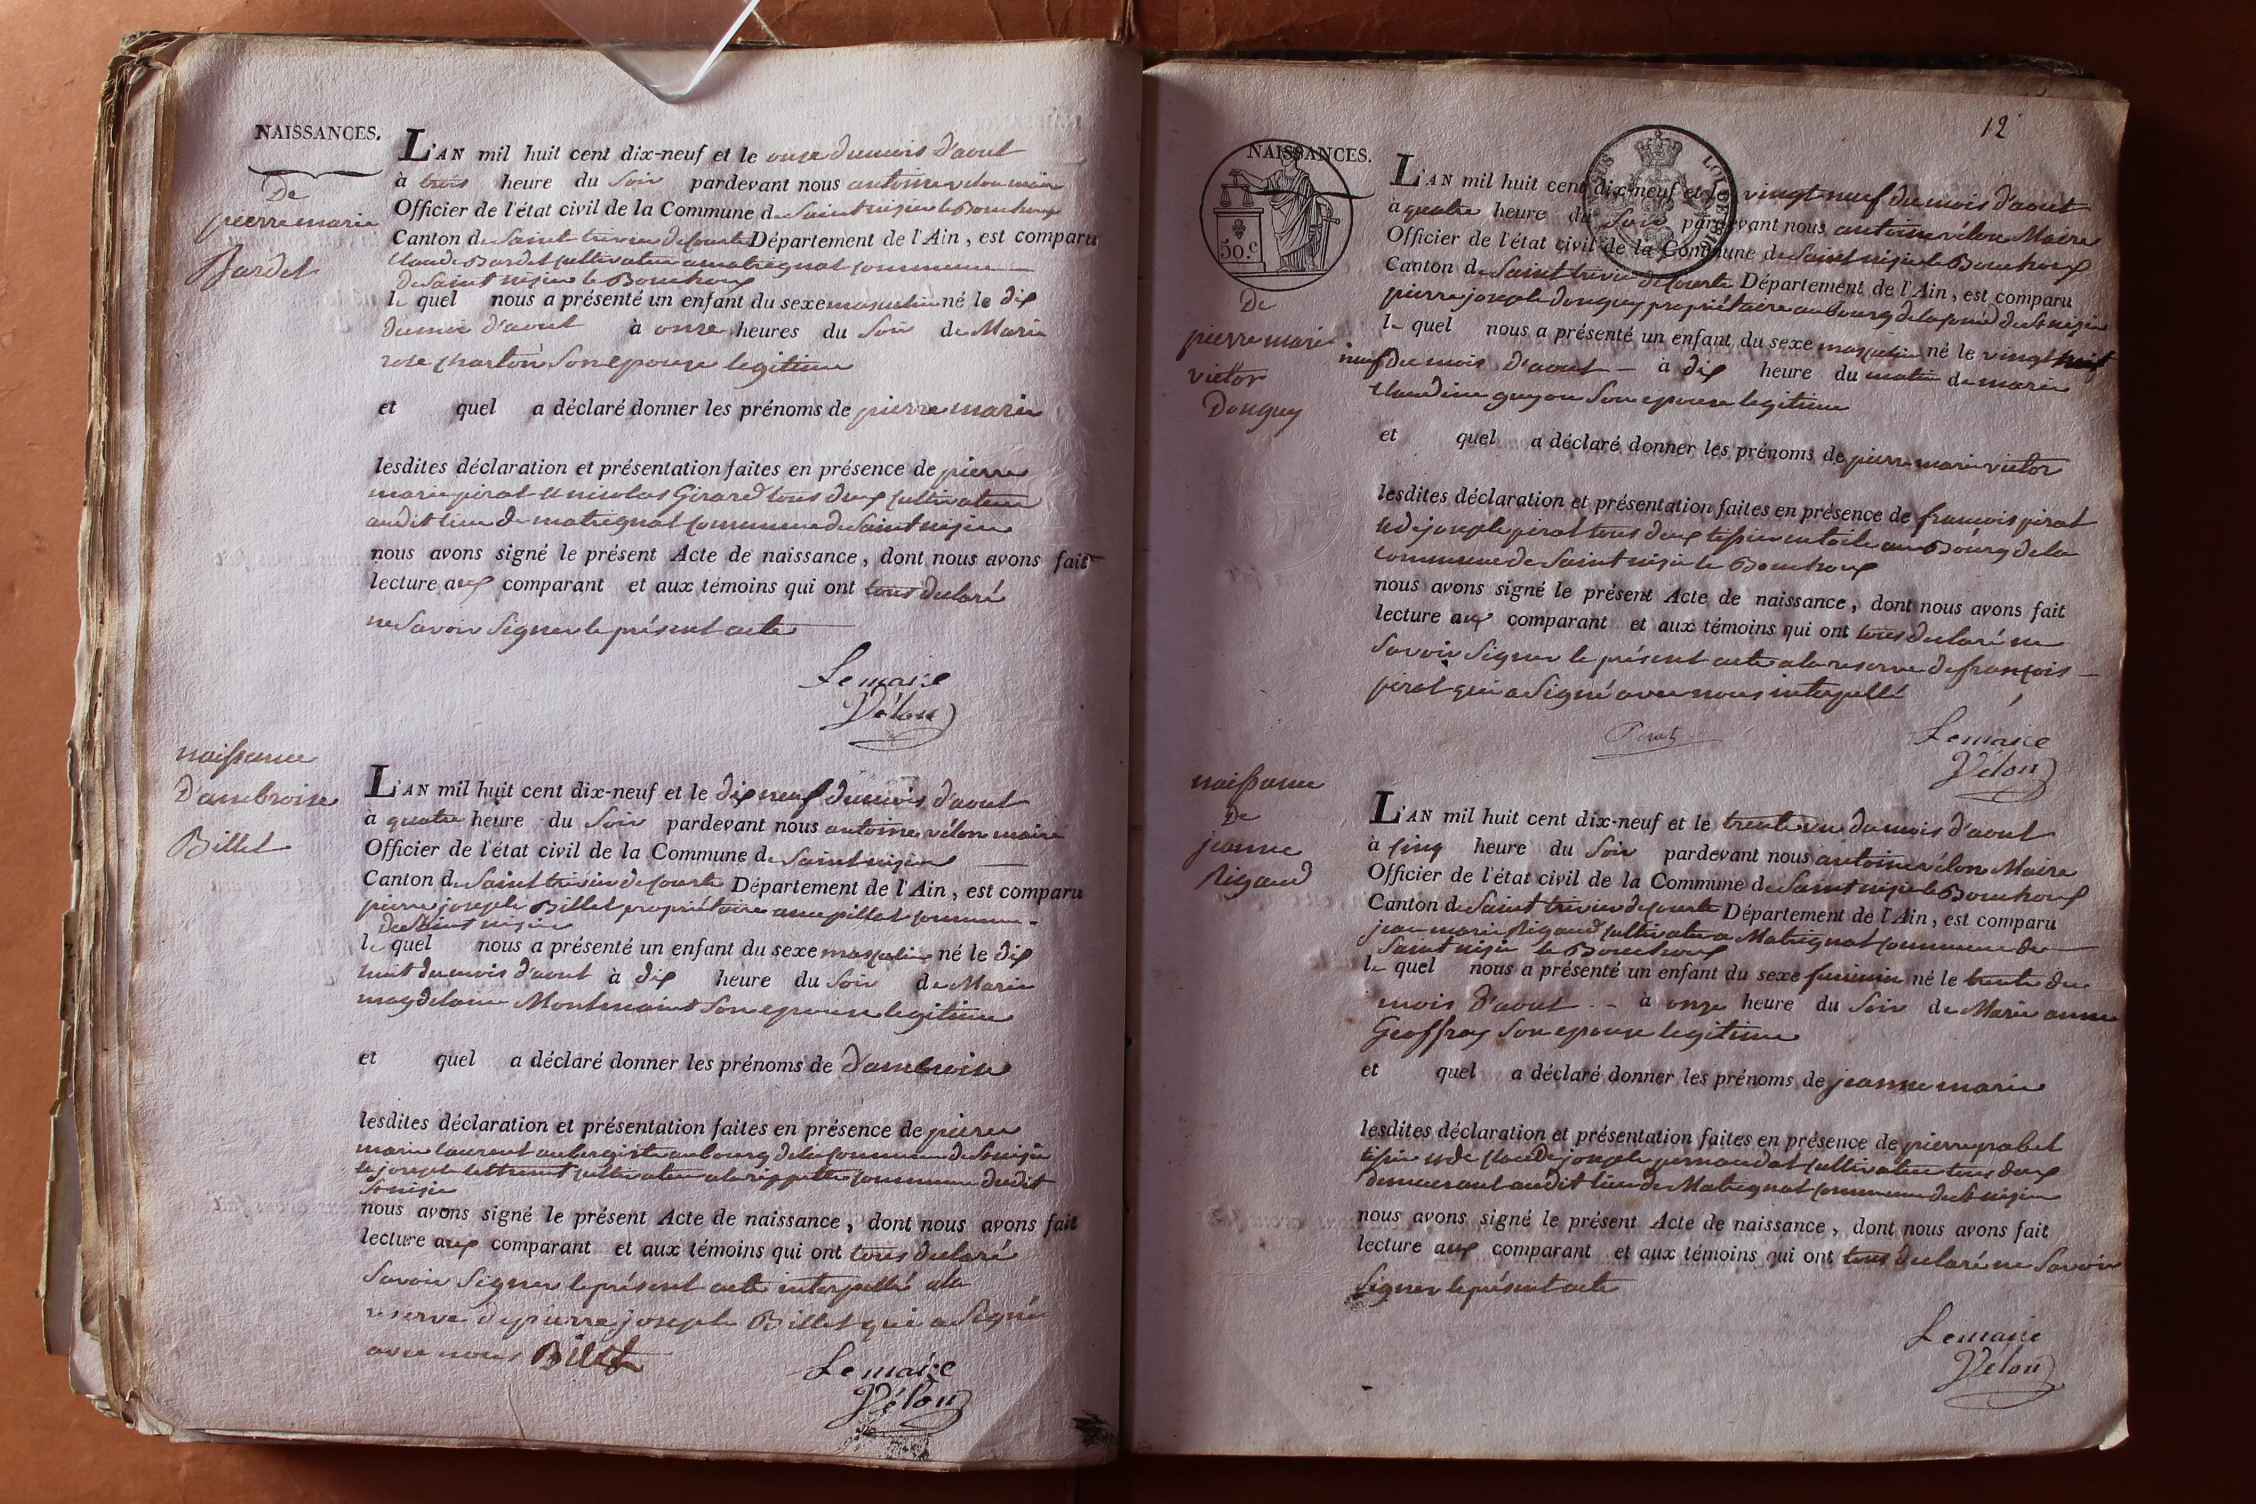 NAISSANCES.
De
pierre marie
Bardet
L'AN mil huit cent dix-neuf et le onze du mois d'aout
à trois heure du soir pardevant nous antoine vélon maire
Officier de l'état civil de la Commune de Saint nizier le Bouchoux
Canton de Saint trivier de Courte Département de l'Ain, est comparu
Claude Bardet cultivateur a matregnat commune
de Saint nizier le Bouchoux
le quel nous a présenté un enfant du sexe masculin né le dix
du mois d'aout à onze heures du soir de Marie
rose charton son epouse legitime
et quel a déclaré donner les prénoms de pierre marie
lesdites déclaration et présentation faites en présence de pierre
marie pirat et nicolas Girard tous deux cultivateur
audit lieu de matregnat commune de Saint nizier
nous avons signé le présent Acte de naissance, dont nous avons fait
lecture aux comparant et aux témoins qui ont tous declaré
ne savoir signer le présent acte
Lemaire
Vélon
naissance
D'ambroise
Billet
L'AN mil huit cent dix-neuf et le dix neuf du mois d'aout
à quatre heure du soir pardevant nous antoine vélon maire
Officier de l'état civil de la Commune de Saint nizier
Canton de Saint trivier de Courte Département de l'Ain, est comparu
pierre joseph Billet propriétaire commune
de Saint nizier
le quel nous a présenté un enfant du sexe masculin né le dix
huit du mois d'aout à dix heure du soir de Marie
magdelaine Montmain son epouse legitime
et quel a déclaré donner les prénoms de D'ambroise
lesdites déclaration et présentation faites en présence de pierre
marie laurent aubergiste au bourg de la commune de St nizier
et joseph cultivateur a la rippette commune dudit
St nizier
nous avons signé le présent Acte de naissance, dont nous avons fait
lecture aux comparant et aux témoins qui ont tous declaré
savoir signer le présent acte interpellé a la
reserve de pierre joseph Billet qui a signé
avec nous Billet
Lemaire
Vélon
12
NAISSANCES.
50 c
De
pierre marie
victor
Donguy
L'AN mil huit cent dix-neuf et le vingt neuf du mois d'aout
à quatre heure du soir pardevant nous antoine vélon Maire
Officier de l'état civil de la Commune de Saint nizier le Bouchoux
Canton de Saint trivier de Courte Département de l'Ain, est comparu
pierre joseph donguy propriétaire au bourg de la de St nizier
le quel nous a présenté un enfant du sexe masculin né le vingt
neuf du mois d'aout à dix heure du matin de marie
claudine guyon son epouse legitime
et quel a déclaré donner les prénoms de pierre marie victor
lesdites déclaration et présentation faites en présence de francois pirat
et de joseph pirat tous deux tissier en toile au Bourg de la
commune de Saint nizier le Bouchoux
nous avons signé le présent Acte de naissance, dont nous avons fait
lecture aux comparant et aux témoins qui ont tous declaré ne
savoir signer le présent acte a la reserve de françois
pirat qui a signé avec nous interpellé
Pirat
Lemaire
Vélon
naissance
De
jeanne
Rigaud
L'AN mil huit cent dix-neuf et le trente un du mois d'aout
à cinq heure du soir pardevant nous antoine vélon Maire
Officier de l'état civil de la Commune de Saint nizier le Bouchoux
Canton de Saint trivier de Courte Département de l'Ain, est comparu
jean marie Rigaud cultivateur a Matregnat commune de
Saint nizier le Bouchoux
le quel nous a présenté un enfant du sexe feminin né le trente du
mois d'aout à onze heure du soir de Marie anne
Geoffray son epouse legitime
et quel a déclaré donner les prénoms de jeanne marie
lesdites déclaration et présentation faites en présence de pierre prabel
tissier et de Claude joseph cultivateur tous deux
demeurant audit lieu de Matregnat commune de St nizier
nous avons signé le présent Acte de naissance, dont nous avons fait
lecture aux comparant et aux témoins qui ont tous declaré ne savoir
signer le présent acte
Lemaire
Vélon